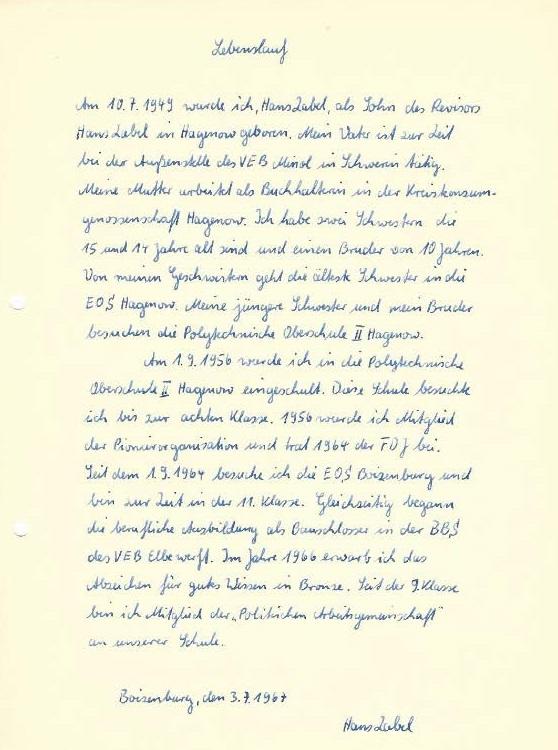 Lebenslauf
Am 10.7.1949 wurde ich, Hans Zabel, als Sohn des Revisors
Hans Zabel in Hagenow geboren. Mein Vater ist zur Zeit
bei der Außenstelle des VEB Minol in Schwerin tätig.
Meine Mutter arbeitet als Buchhalterin in der Kreiskonsum-
genossenschaft Hagenow. Ich habe zwei Schwestern die
15 und 14 Jahre alt sind und einen Bruder von 10 Jahren.
Von meinen Geschwistern geht die älteste Schwester in die
EOS Hagenow. Meine jüngere Schwester und mein Bruder
besuchen die Polytechnische Oberschule II Hagenow.
Am 1.9.1956 wurde ich in die Polytechnische
Oberschule II Hagenow eingeschult. Diese Schule besuchte
ich bis zur achten Klasse. 1956 wurde ich Mitglied
der Pionierorganisation und trat 1964 der FDJ bei.
Seit dem 1.9.1964 besuche ich die EOS Boizenburg und
bin zur Zeit in der 11. Klasse. Gleichzeitig begann
die berufliche Ausbildung als Bauschlosser in der BBS
des VEB Elbewerft. Im Jahre 1966 erwarb ich das
Abzeichen für gutes Wissen in Bronze. Seit der 9. Klasse
bin ich Mitglied der „Politischen Arbeitsgemeinschaft"
an unserer Schule.
Boizenburg, den 3.7.1967
Hans Zabel